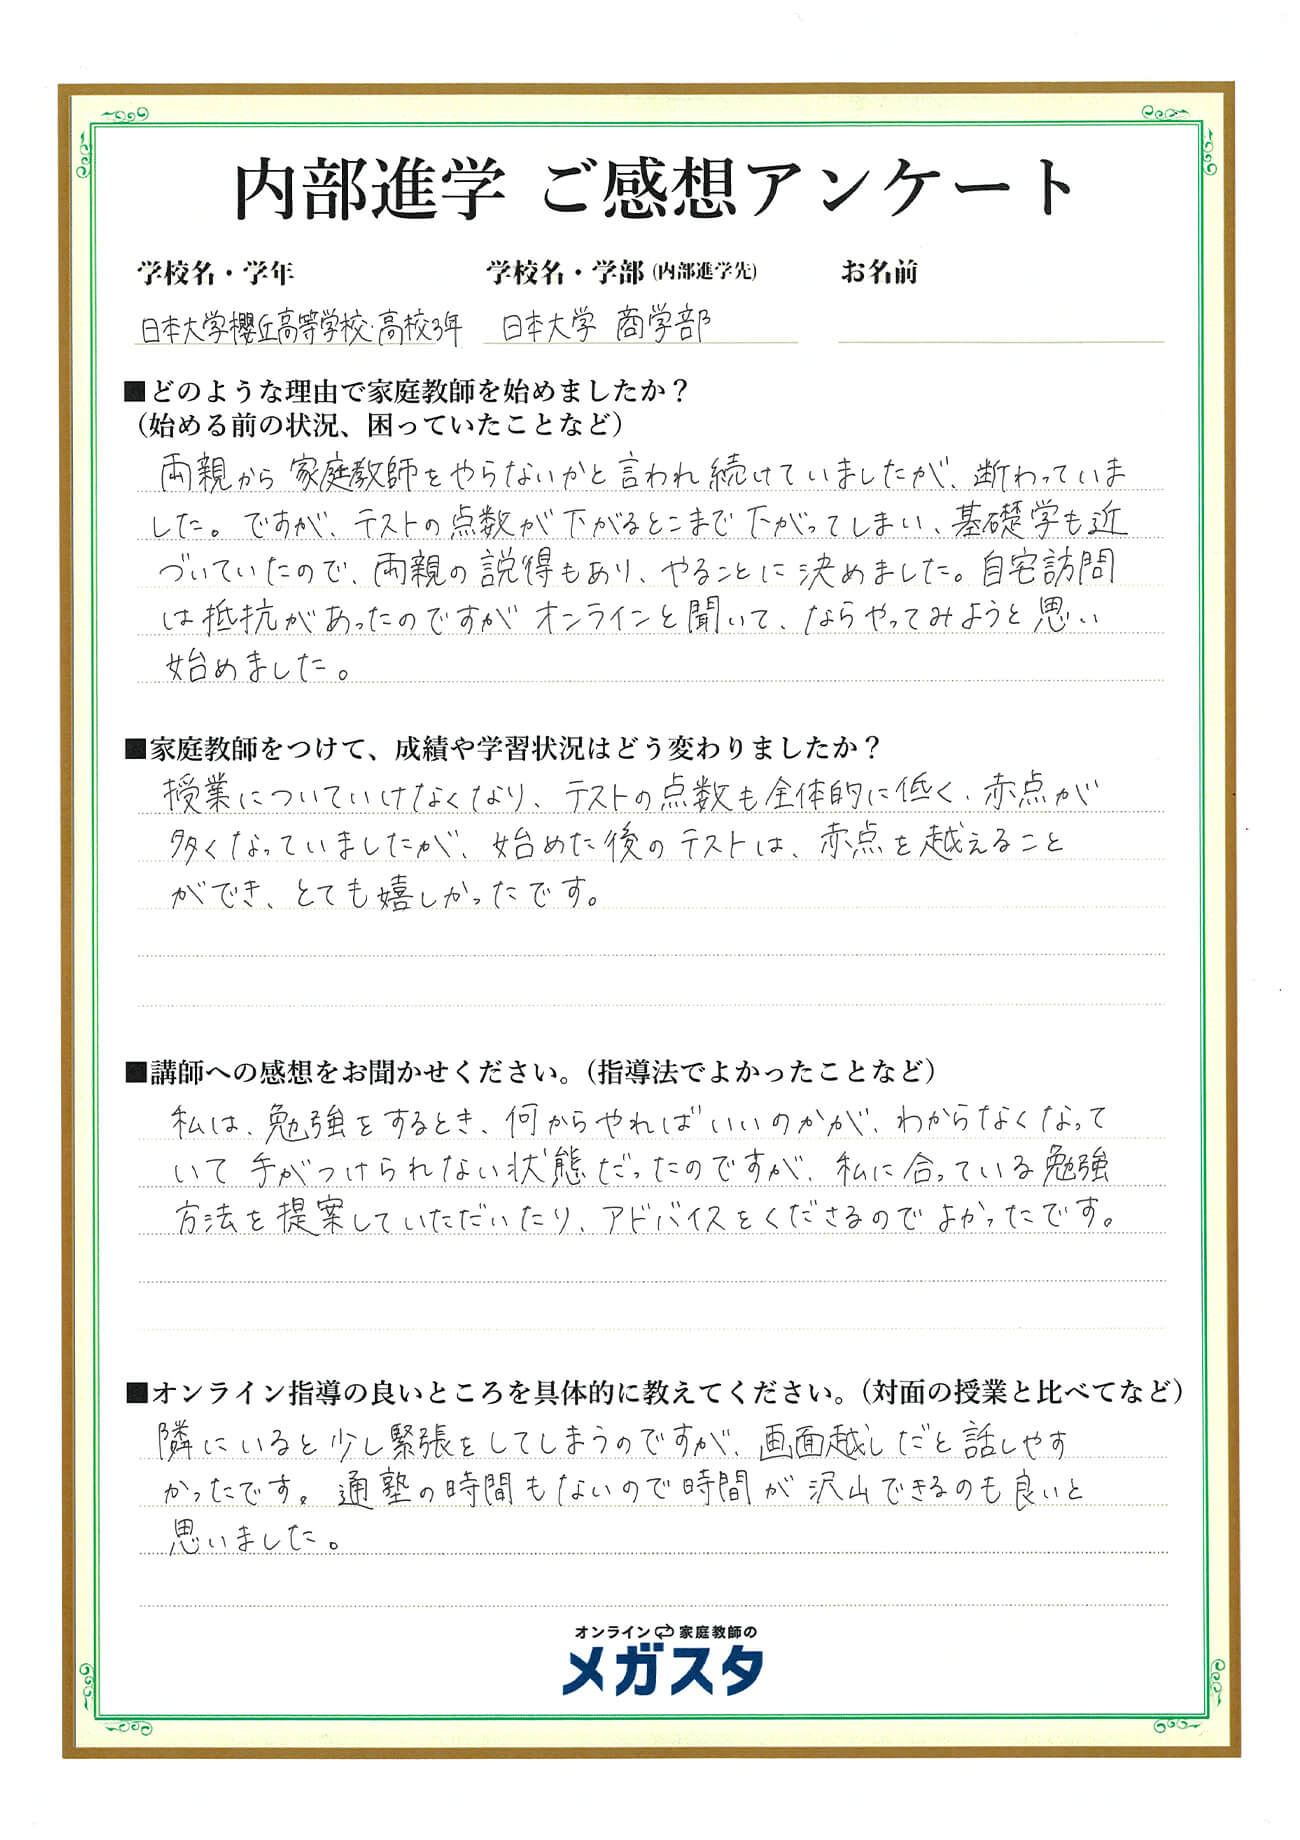 内部進学 ご感想アンケート
学校名・学年 学校名・学部 (内部進学先) お名前
日本大学櫻丘高等学校・高校3年 日本大学 商学部
■どのような理由で家庭教師を始めましたか？
（始める前の状況、困っていたことなど）
両親から家庭教師をやらないかと言われ続けていましたが、断わっていま
した。ですが、テストの点数が下がるとこまで下がってしまい、基礎学も近
づいていたので、両親の説得もあり、やることに決めました。自宅訪問
は抵抗があったのですがオンラインと聞いて、ならやってみようと思い
始めました。
■家庭教師をつけて、成績や学習状況はどう変わりましたか？
授業についていけなくなり、テストの点数も全体的に低く、赤点が
多くなっていましたが、始めた後のテストは、赤点を越えること
ができ、とても嬉しかったです。
■講師への感想をお聞かせください。（指導法でよかったことなど）
私は、勉強をするとき、何からやればいいのかが、わからなくなって
いて手がつけられない状態だったのですが、私に合っている勉強
方法を提案していただいたり、アドバイスをくださるのでよかったです。
■オンライン指導の良いところを具体的に教えてください。（対面の授業と比べてなど）
隣にいると少し緊張をしてしまうのですが、画面越しだと話しやす
かったです。通塾の時間もないので時間が沢山できるのも良いと
思いました。
オンライン家庭教師の
メガスタ